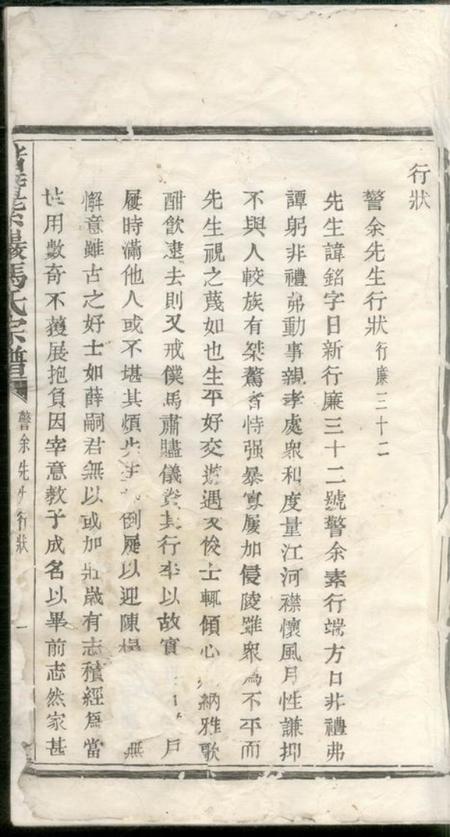 行狀
警余先生行狀 行廉三十二
先生諱銘字日新行廉三十二號警余素行端方口非禮弗
譚躬非禮弗動事親孝處衆和度量江河襟懷風月性謙抑
不與人較族有桀驁者恃强暴寡屢加侵陵雖衆為不平而
先生視之蔑如也生平好交遊遇文俊士輒傾心 納雅歌
酣飲逮去則又戒僕馬肅贐儀資其行李以故賓 戶
屨時滿他人或不堪其煩先生 倒屣以迎陳榻 無
懈意雖古之好士如薛嗣君無以或加壯歲有志積經為當
世用數奇不獲展抱負因宰意教子成名以畢前志然家甚
馬氏宗譜
警余先生行狀
一